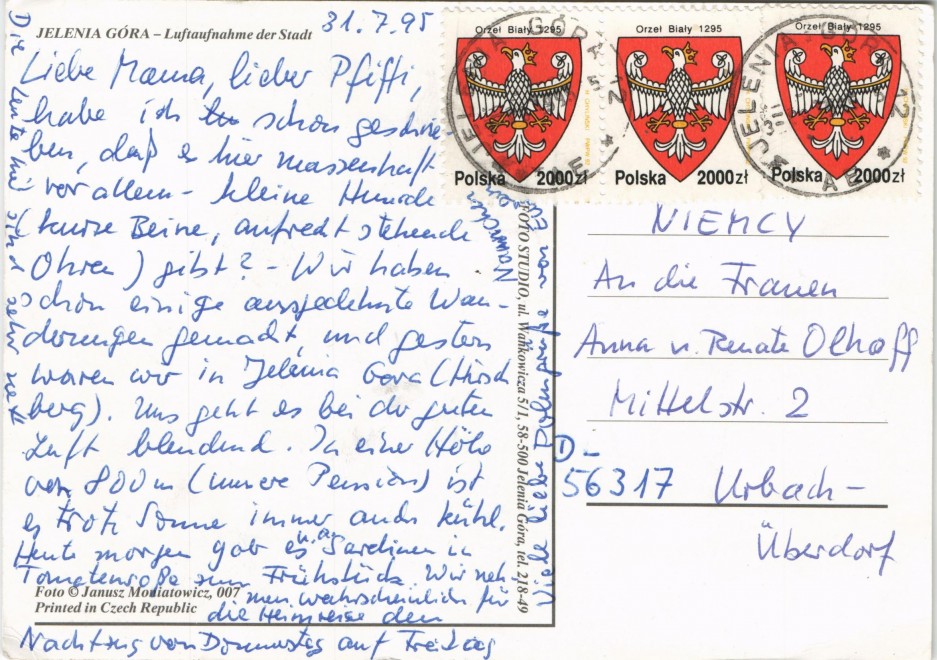 31.7.95
JELENIA GÓRA – Luftaufnahme der Stadt
Liebe Mama, lieber Pfiffi,
habe ich schon geschrie
ben, daß es hier massenhaft
vor allem kleine Hunde
(kurze Beine, aufrecht stehende
Ohren) gibt? – Wir haben
schon einige ausgedehnte Wan-
derungen gemacht, und gestern
waren wir in Jelenia Gora (Hirsch
berg). Uns geht es bei der guten
Luft blendend. In einer Höhe
von 800 m (unsere Pension) ist
es trotz Sonne immer auch kühl.
Heute morgen gab es u.a. Sardinen in
Tomatensoße zum Frühstück. Wir neh
men wahrscheinlich für
die Heimreise den
Nachtzug von Donnerstag auf Freitag
Foto © Janusz Moniatowicz, 007
Printed in Czech Republic
Die Leute hier sind sehr nett
Viele liebe Pfotengrüße von Eurem
FOTO STUDIO, ul. Wańkowicza 5/1, 58-500 Jelenia Góra, tel. 218-49
Orzeł Biały 1295
Polska 2000 zł
Orzeł Biały 1295
Polska 2000 zł
Orzeł Biały 1295
Polska 2000 zł
JELENIA GÓRA 12
JELENIA GÓRA 12
NIEMCY
An die Frauen
Anna u. Renate Olhoff
Mittelstr. 2
D-
56317 Urbach-
Überdorf